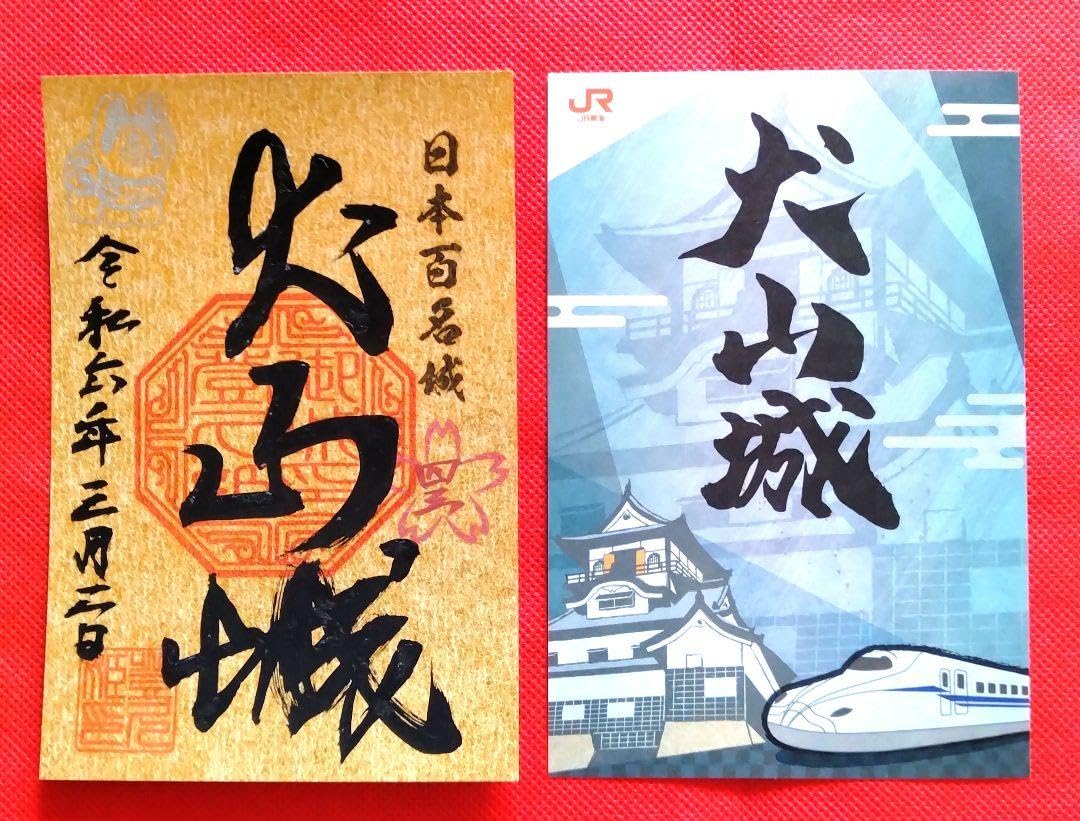 日本百名城
犬山城
令和六年三月二日
四三
JR
JR東海
犬山城